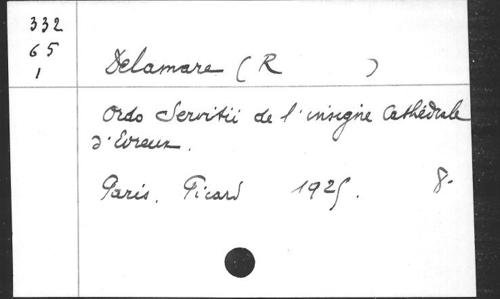 332
65
1
Delamare (R )
Ordo Servitii de l'insigne Cathédrale
d'Evreux.
Paris. Picard 1925. 8-